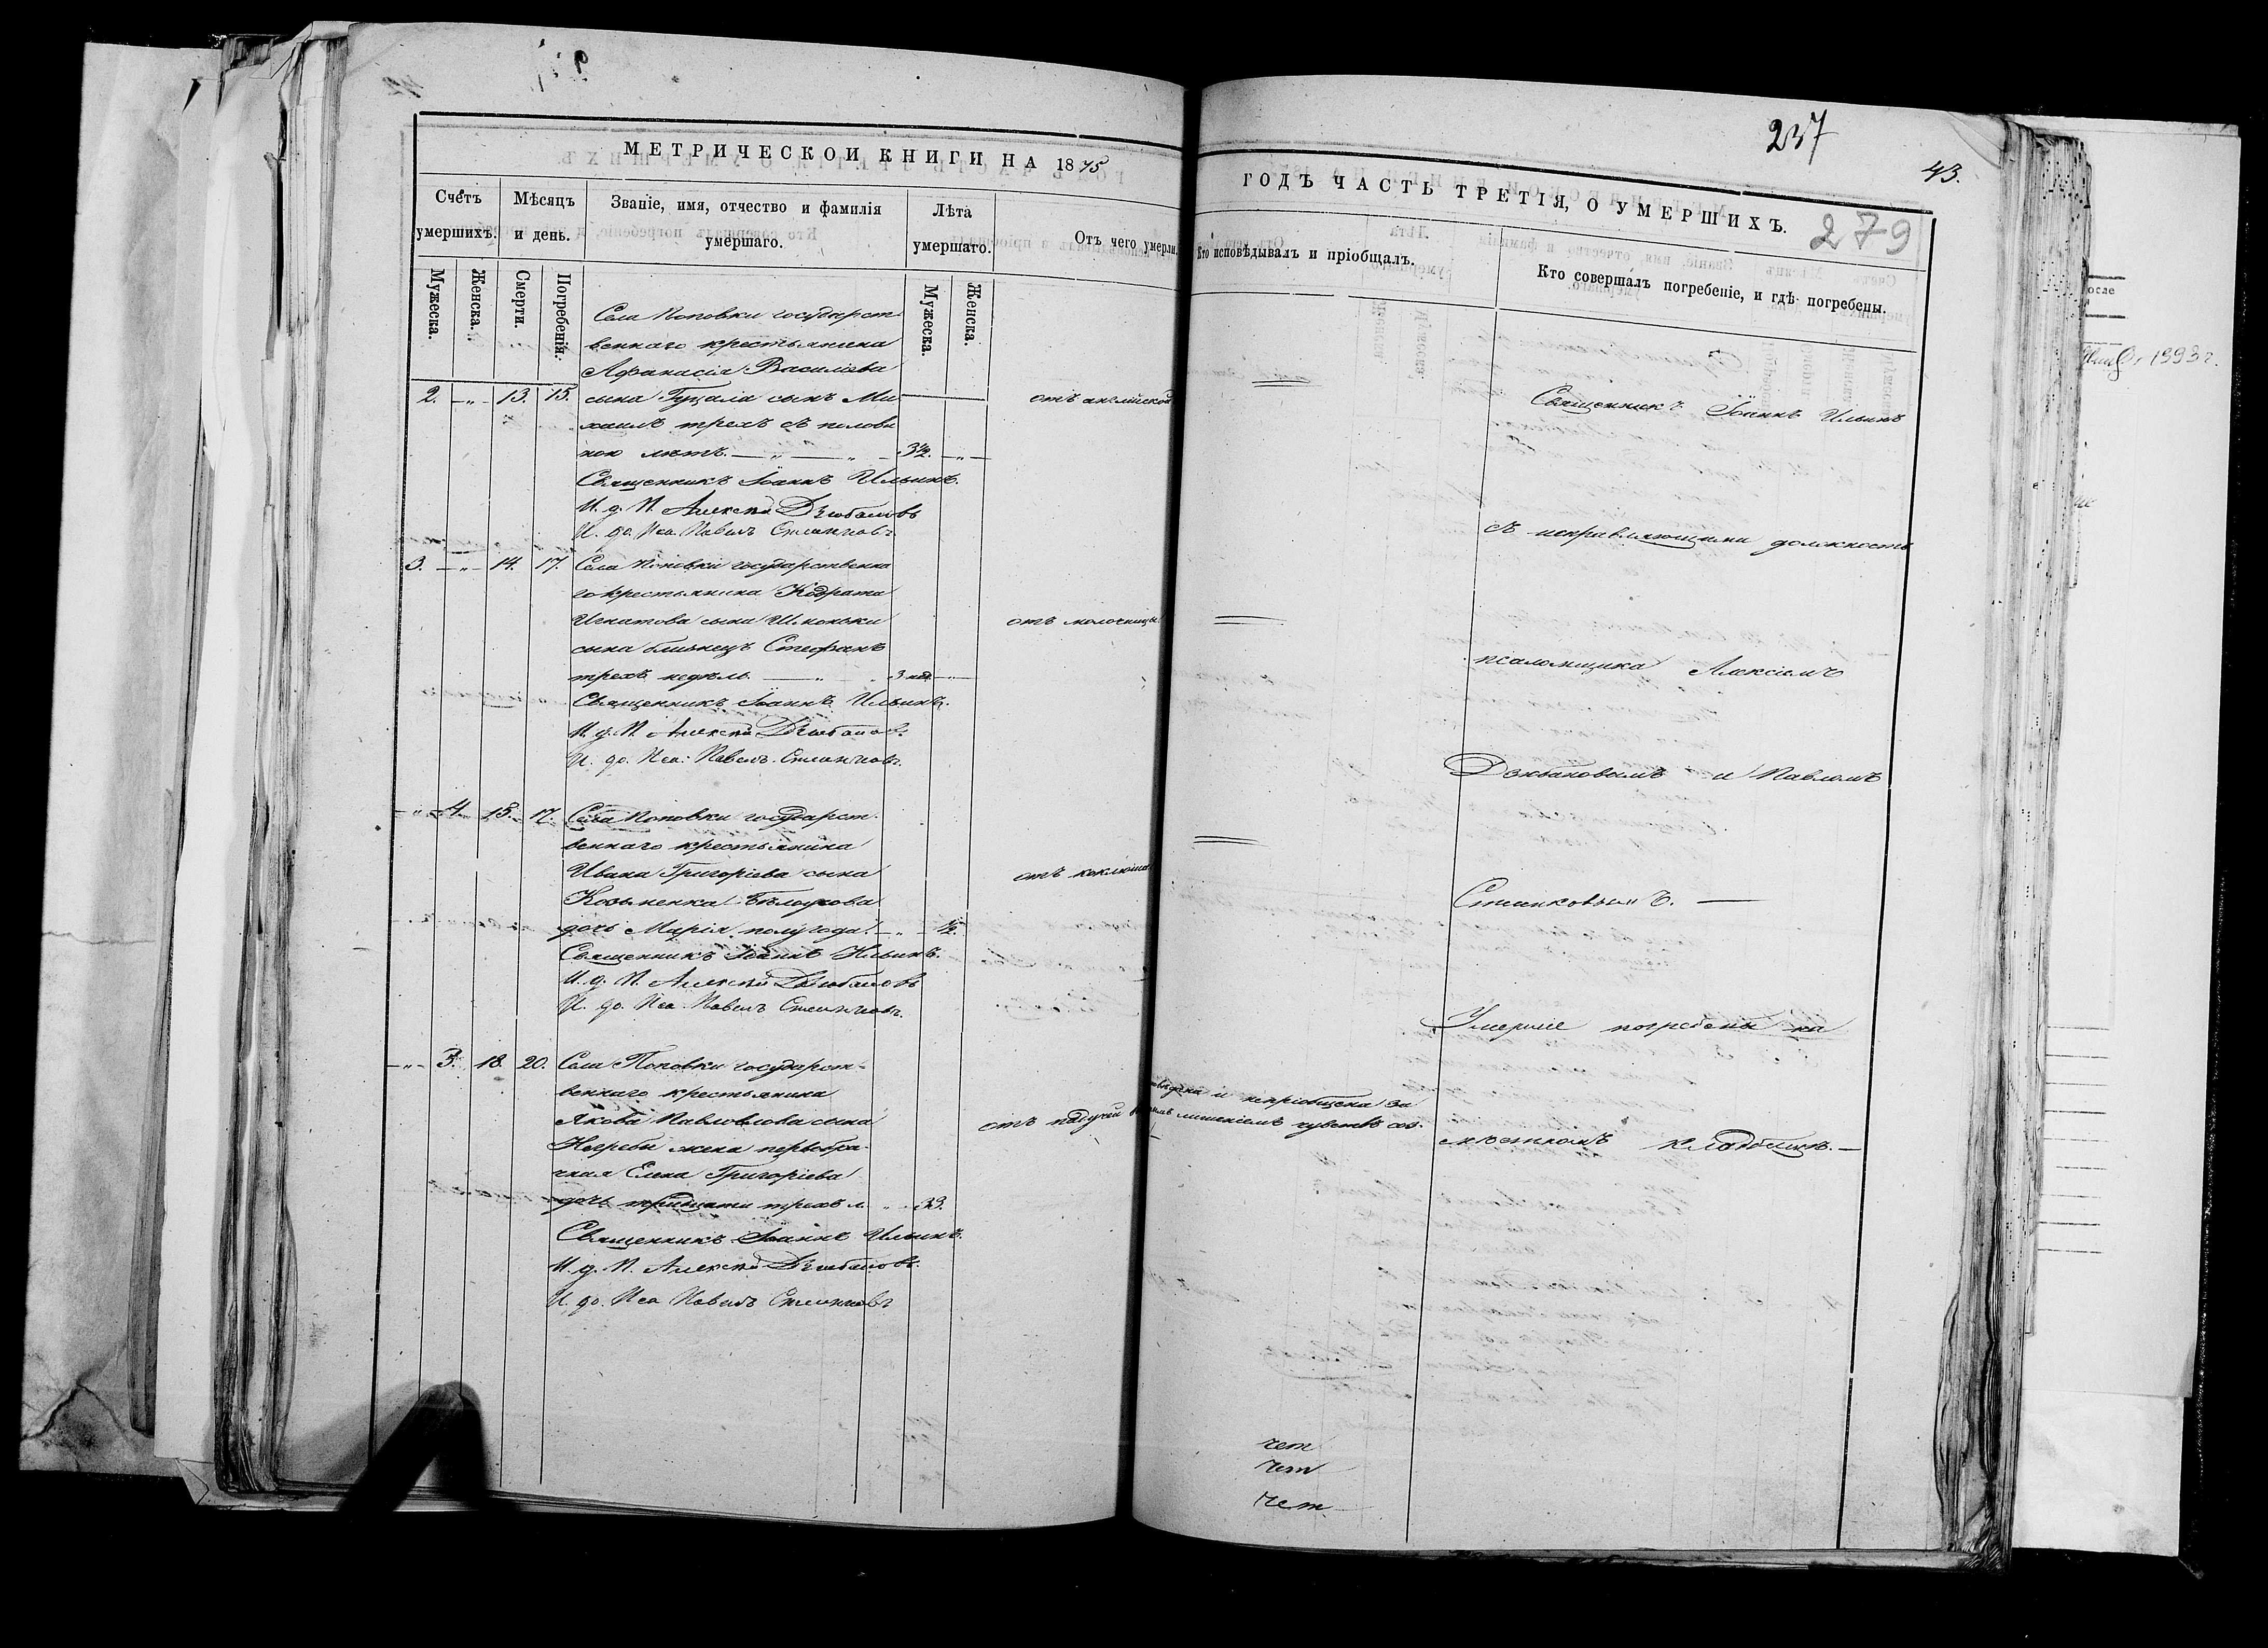 237
43.
279
МЕТРИЧЕСКОЙ КНИГИ НА 1875
ГОДЪ ЧАСТЬ ТРЕТІЯ, О УМЕРШИХЪ.
Счетъ умершихъ.
Мѣсяцъ и день.
Званіе, имя, отчество и фамилія умершаго.
Лѣта умершаго.
Отъ чего умерли.
Кто исповѣдывалъ и пріобщалъ.
Кто совершалъ погребеніе, и гдѣ погребены.
Мужеска.
Женска.
Смерти.
Погребенія.
Мужеска.
Женска.
Села Поповки государст-
веннаго крестьянина
Афанасія Василіева
2. - „ - 13. 15. сына Гуцала сынъ Ми
хаилъ трехъ съ полови
ною лѣтъ. — „ — „ 3½. - „ -
отъ англійской
Священникъ Іоаннъ Ильинъ.
И. д. П. Алексѣй Дзюбановъ
И. до. Пса. Павелъ
3. - „ - 14. 17. Села Поповки государственна
го крестьянина Кодрата
Игнатова сына Шпоньки
сына близнецъ Стефанъ
трехъ недѣль. — „ 3 нед. - „ -
отъ молочницы
Священникъ Іоаннъ Ильинъ.
И. д. П. Алексѣй Дзюбановъ
И. до. Пса. Павелъ
- „ - 4. 15. 17. Села Поповки государст-
веннаго крестьянина
Ивана Григоріева сына
Бѣлоухова
дочь Марія полугода. - „ - ½.
отъ коклюша
Священникъ Іоаннъ Ильинъ.
И. д. П. Алексѣй Дзюбановъ
И. до. Пса. Павелъ
- „ - 5. 18. 20. Села Поповки государст-
веннаго крестьянина
Якова Павловлова сына
Негребы жена первобра-
чная Елена Григоріева
дочь тридцати трехъ л. „ 33.
отъ падучей
и непріобщена за
лишеніемъ чувствъ
Священникъ Іоаннъ Ильинъ.
И. д. П. Алексѣй Дзюбановъ
И. до. Пса Павелъ
Священникъ Іоаннъ Ильинъ
съ исправляющими должность
псаломщика Алексіемъ
Дзюбановымъ и Павломъ
Умершіе погребены на
мѣстномъ кладбищѣ. —
чет
чет
чет.
1993 г.